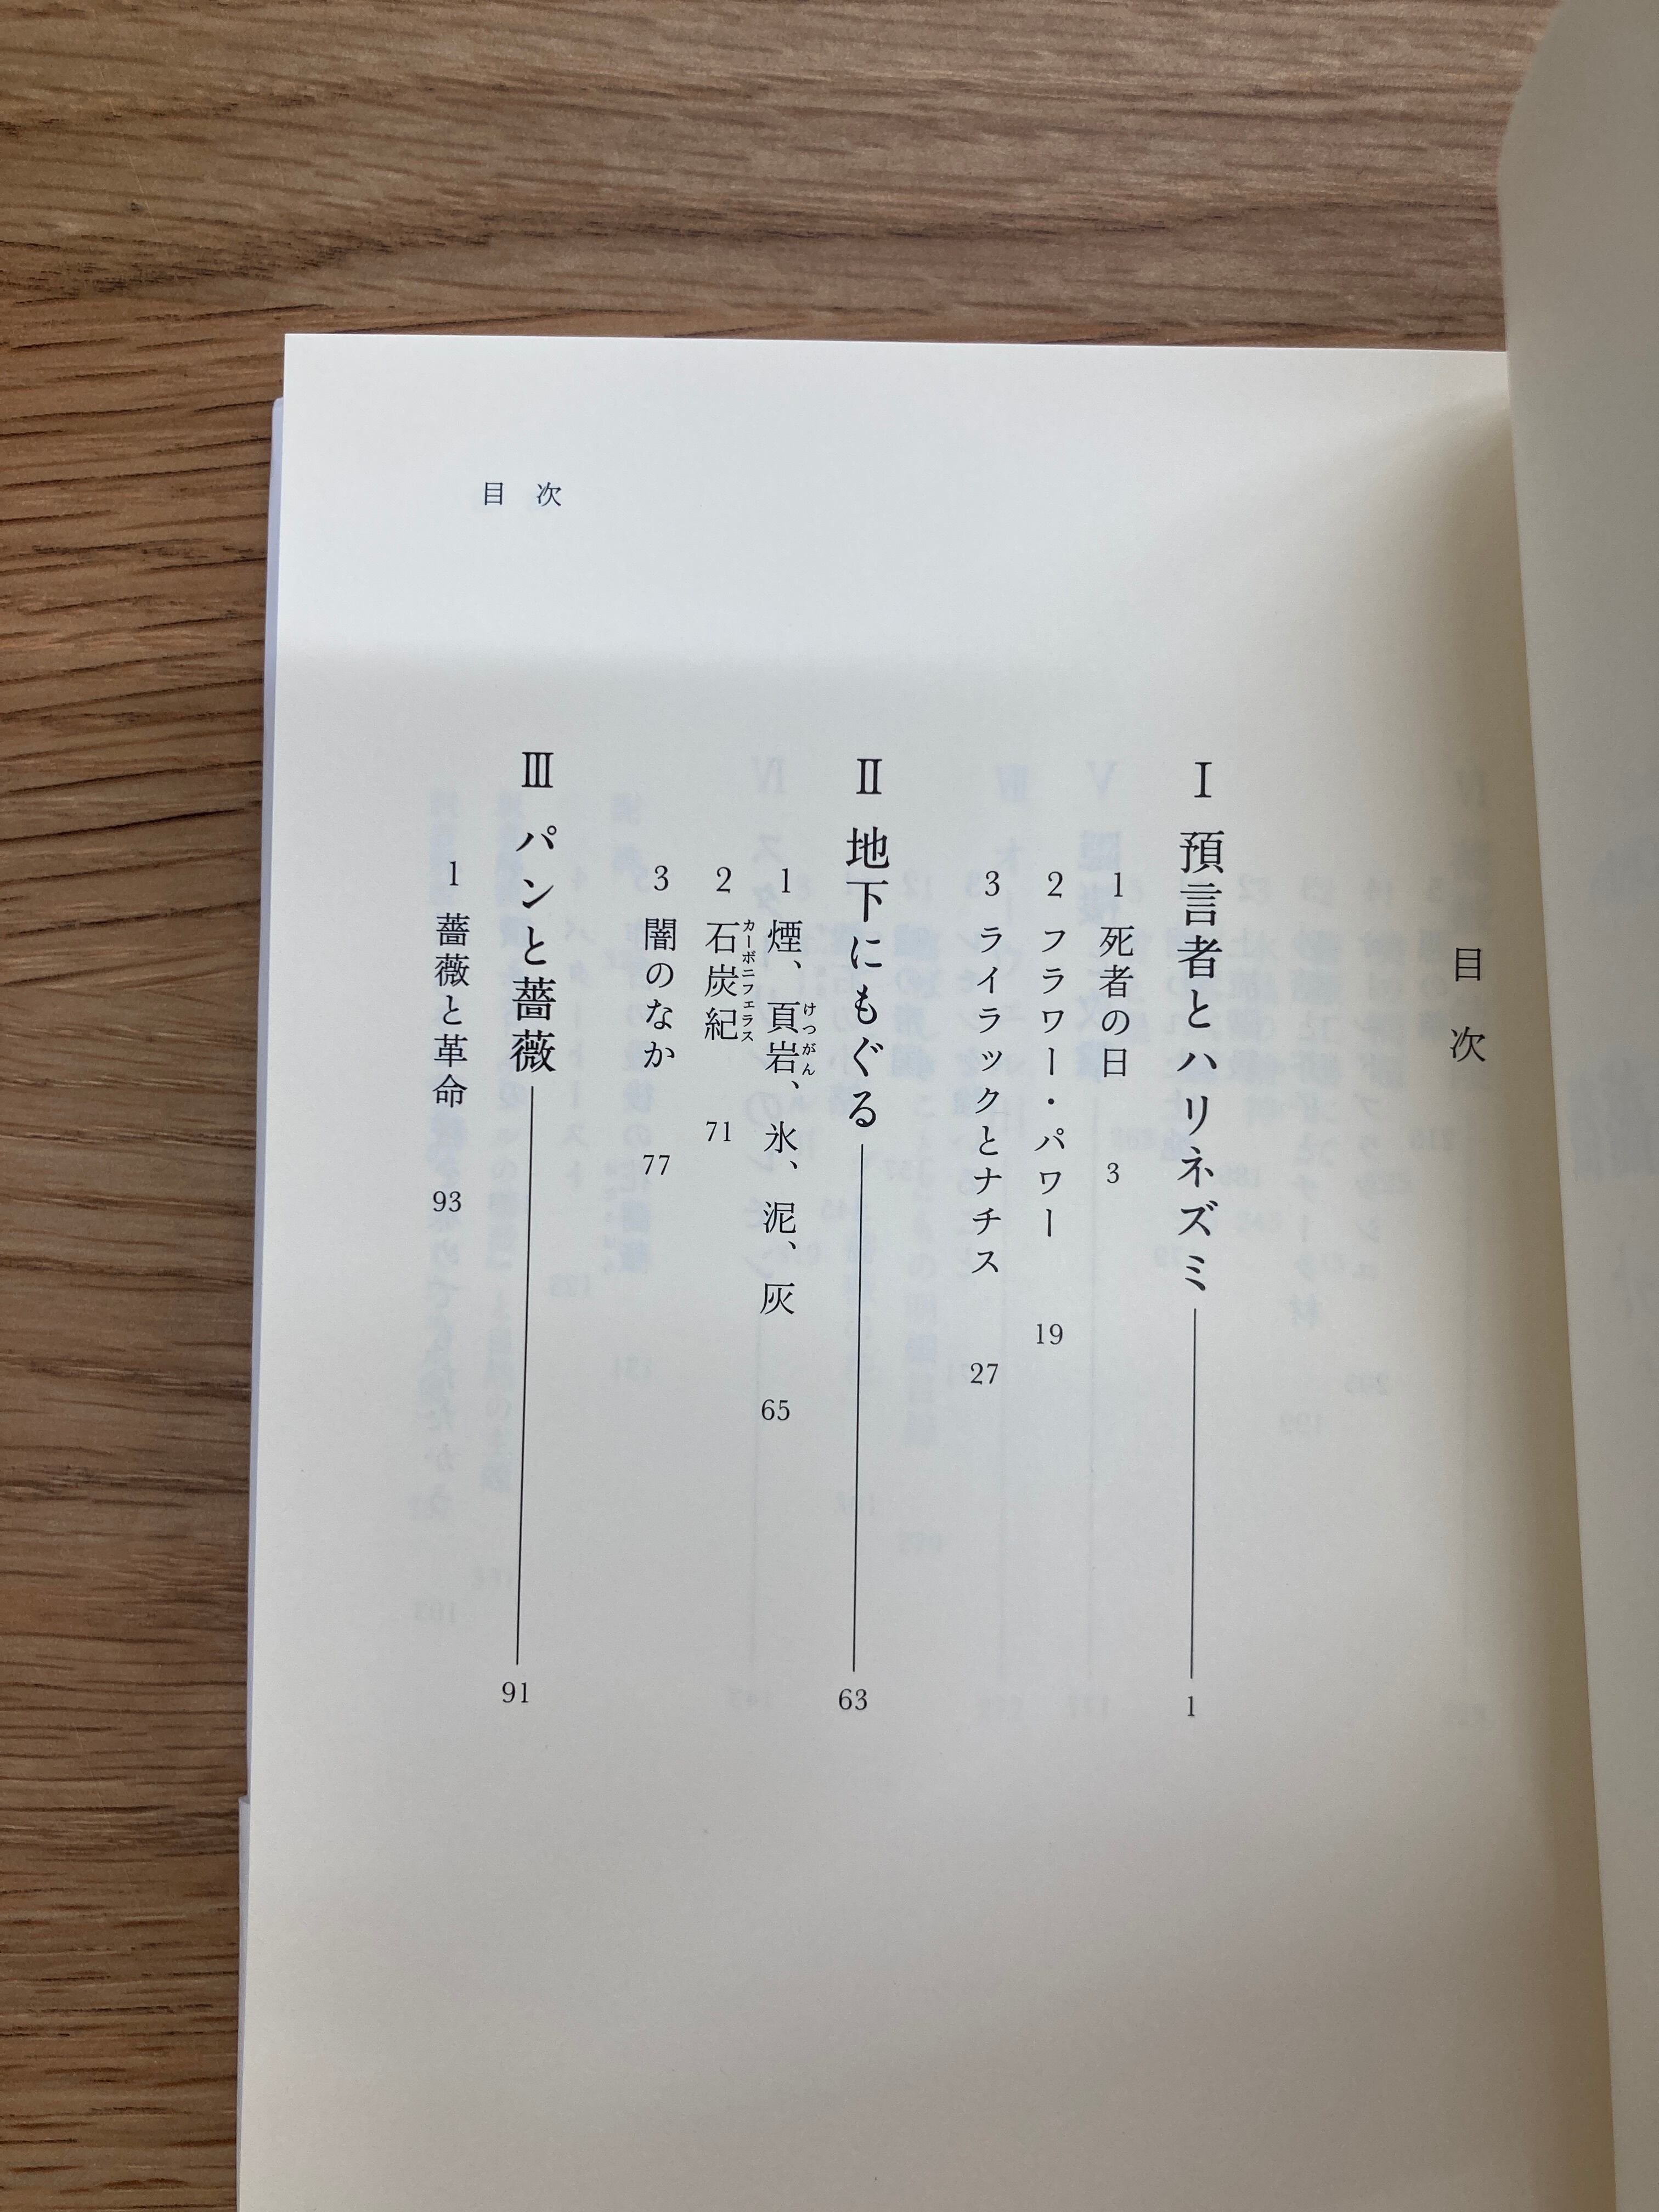 目次
目次
Ⅰ 預言者とハリネズミ 1
1 死者の日 3
2 フラワー・パワー 19
3 ライラックとナチス 27
Ⅱ 地下にもぐる 63
けつがん
1 煙、頁岩、氷、泥、灰 65
カーボニフェラス
2 石炭紀 71
3 闇のなか 77
Ⅲ パンと薔薇 91
1 薔薇と革命 93